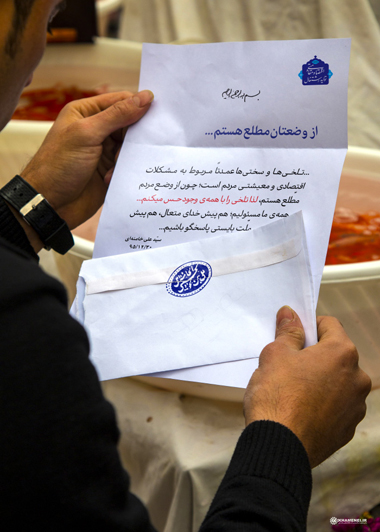 بسم الله الرحمن الرحیم
از وضعتان مطلع هستم...
...تلخی‌ها و سختی‌ها عمدتاً مربوط به مشکلات
اقتصادی و معیشتی مردم است؛ چون از وضع مردم
مطلع هستم، لذا تلخی را با همه‌ی وجود حس میکنم...
همه‌ی ما مسئولیم؛ هم پیش خدای متعال، هم پیش
ملت بایستی پاسخگو باشیم...
سیّد علی خامنه‌ای
۹۵/۱۲/۳۰
KHAMENEI.IR